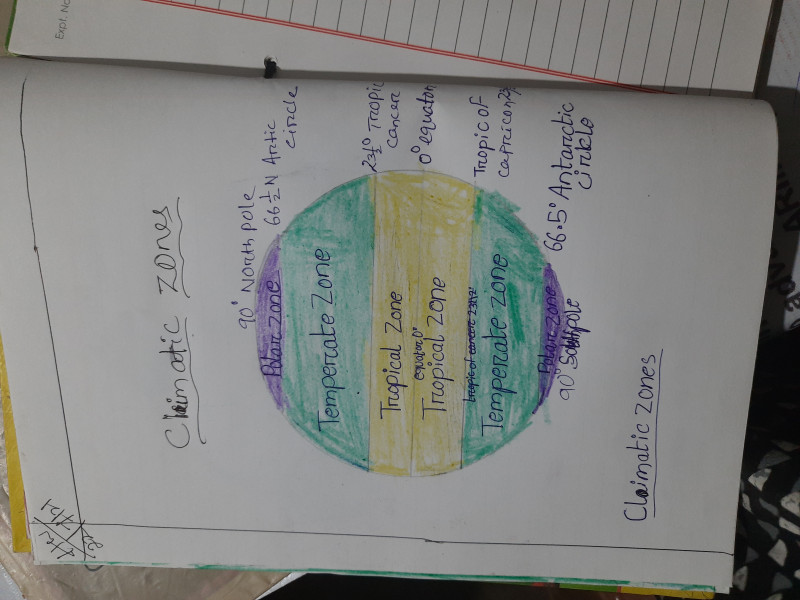 Expt. No
Claimatic zones
90° North pole
66½ N Arctic
circle
23½° Tropic
cancer
0° equator
Tropic of
capricon 23½
66.5° Antarctic
circle
Polar zone
Temperate zone
Tropical zone
equator 0°
Tropical zone
Temperate zone
Polar zone
90° South pole
Claimatic zones